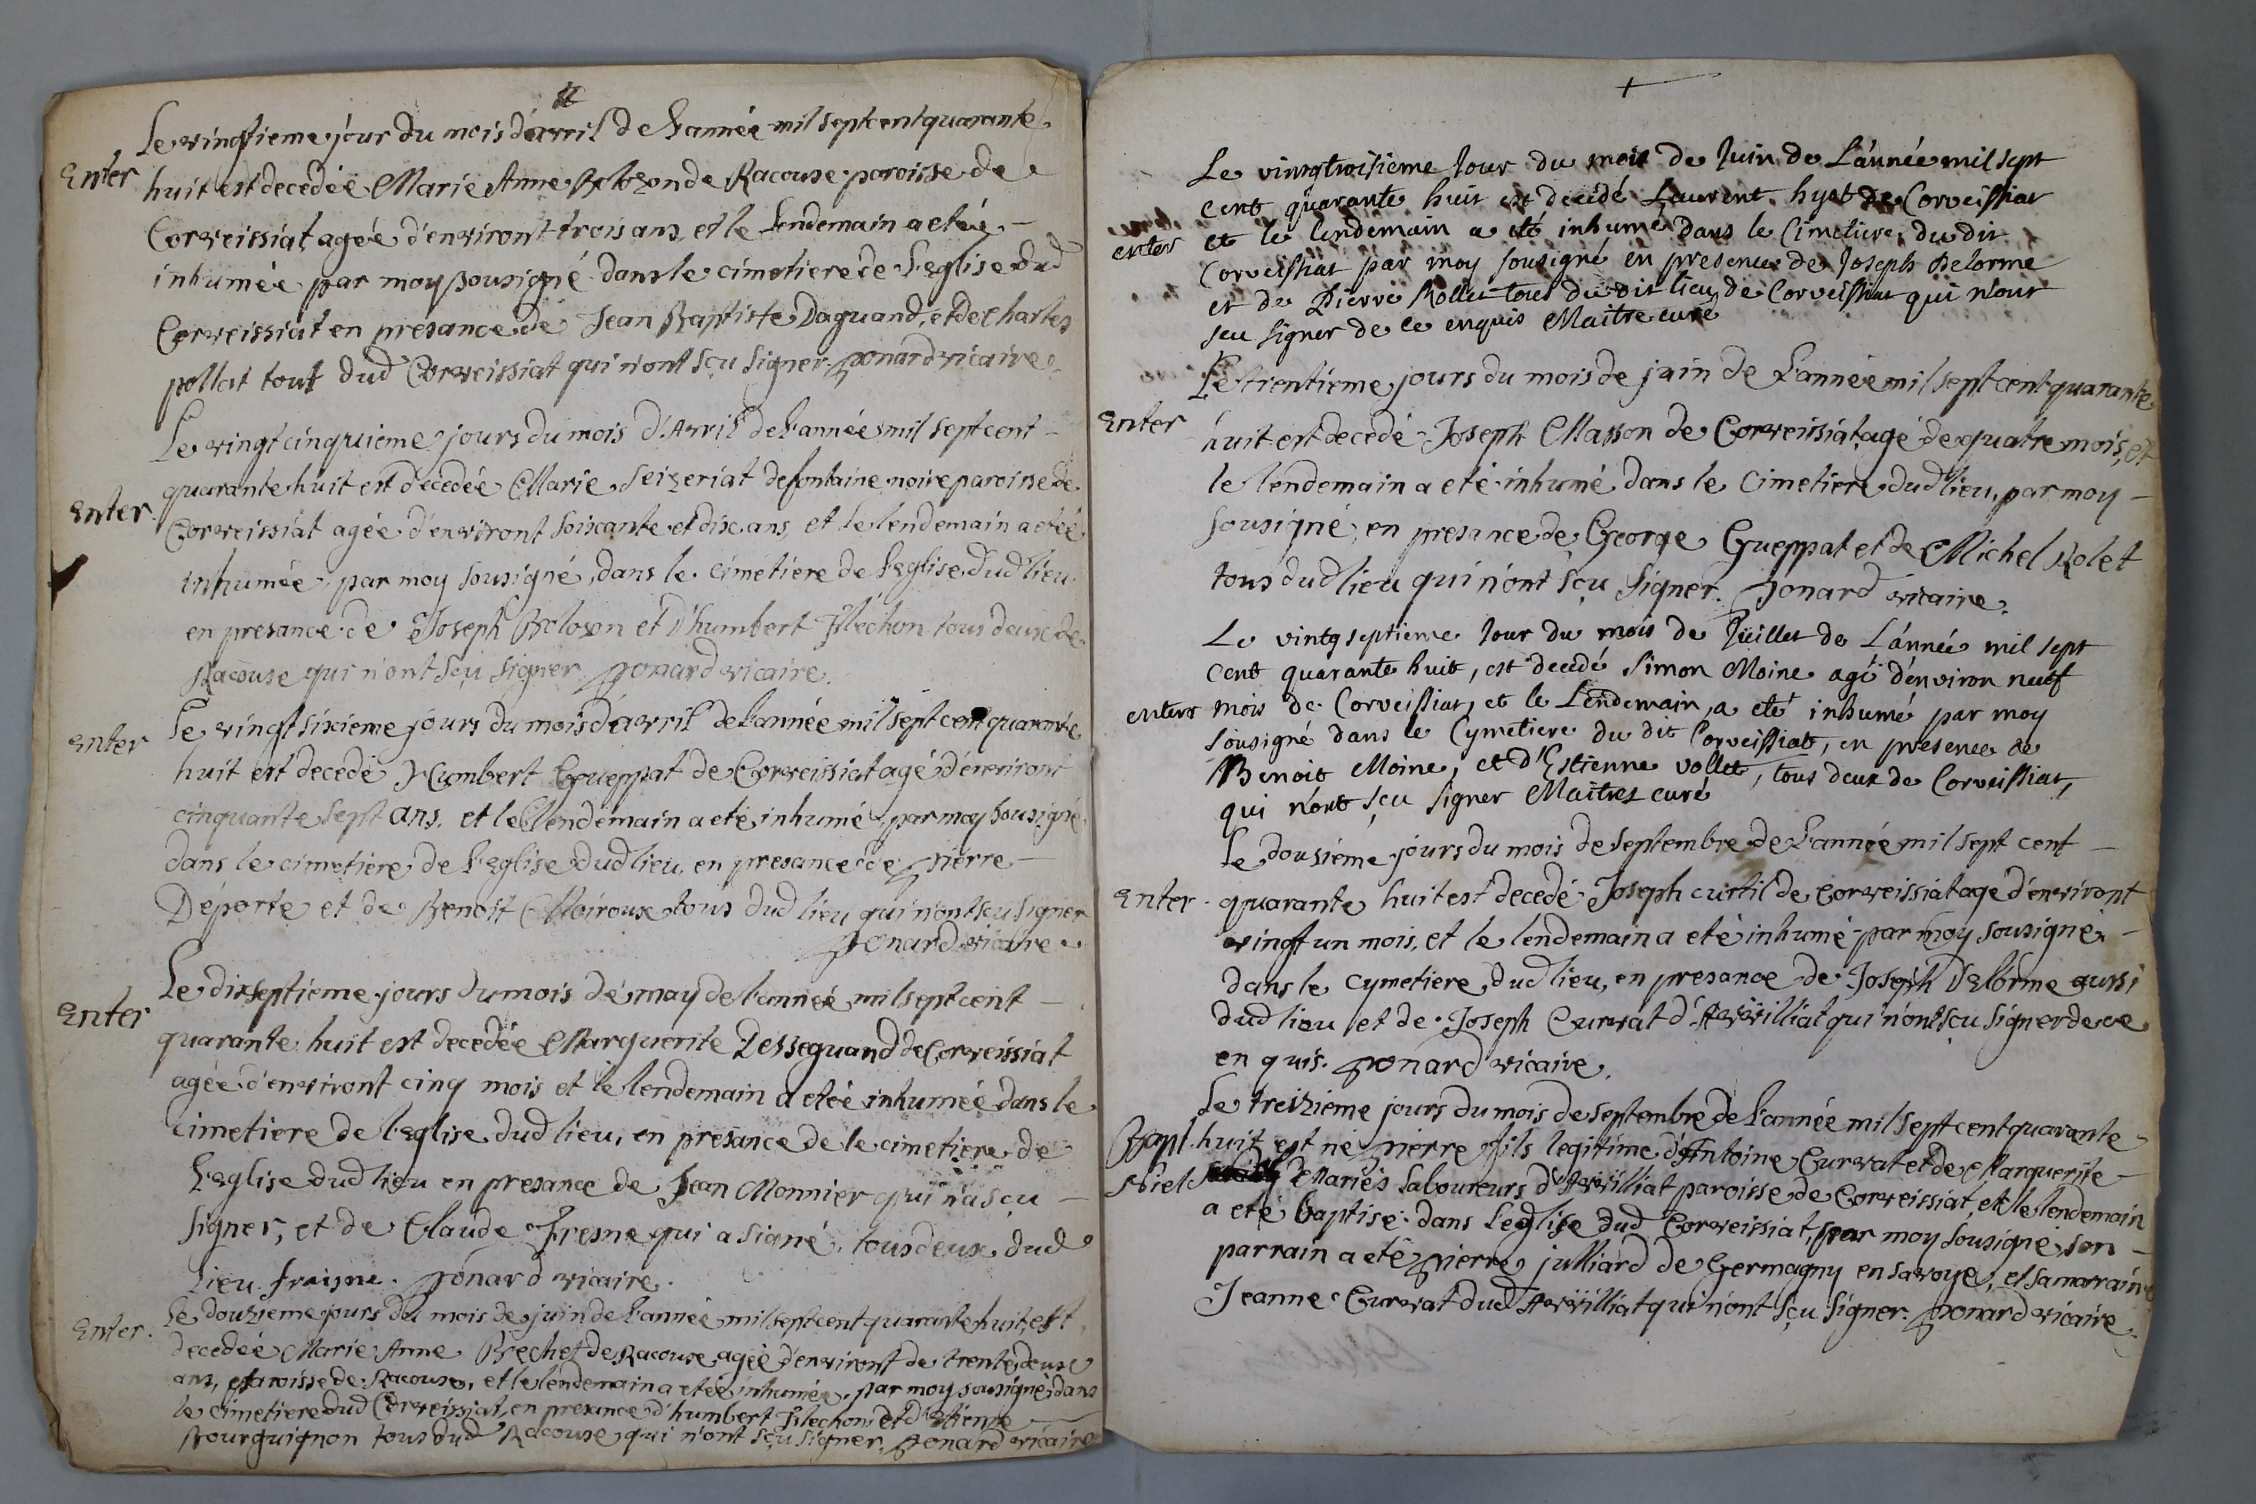 Le vingtieme jour du mois d'avril de L'année mil sept cent quarante
Enter
huit est decedée Marie Anne Bolozon de Racouse paroisse de
Corveissiat agée d'environt trois ans, et le Lendemain a etée
inhumée par moy sousigné dans le cimetiere de L'eglise dud
Corveissiat en presance de Jean Baptiste Daguand, et de Charles
pollat tout dud Corveissiat qui n'ont sçu signer. ponard vicaire.
Le vingt cinquieme jours du mois d'Avril de L'année mil sept cent
quarante huit est decedée Marie Seizeriat de fontaine noire paroisse de
Enter.
Corveissiat agée d'environt soixante et dix ans, et le lendemain a etéé
inhumée par moy sousigné, dans le cimetiere de L'eglise dud lieu
en presance de Joseph Bolozon et d'humbert Fléchon tous deux de
Racouse qui n'ont sçu signer ponard vicaire.
Le vingt sixieme jours du mois d'avril de L'année mil sept cent quarante
Enter
huit est decedé Humbert Gueppat de Corveissiat agé d'environt
cinquante sept ans, et le lendemain a eté inhumé par moy sousigné
dans le cimetiere de L'eglise dud lieu, en presance de pierre
Déporte et de Benoit Moiroux tous dud lieu qui n'ont sçu signer
ponard vicaire.
Le dixseptieme jours du mois dé may de L'année mil sept cent
Enter
quarante huit est decedée Marguerite Desseguand de Corveissiat
agée d'environt cinq mois et le lendemain a etée inhumée dans le
cimetiere de l'eglise dud lieu, en presance de le cimetiere de
L'eglise dud lieu en presance de Jean Monnier qui na sçu
signer, et de Claude Fresne qui a signé, tous deux dud
lieu. fraisne. ponard vicaire.
Enter.
Le douzieme jours du mois de juin de L'année mil sept cent quarante huit, est
decedée Marie Anne Brechet de Racouse agée d'environt de trente deux
ans, paroisse de Racouse, et le lendemain a etée inhumée, par moy sousigné, dans
le cimetiere dud Corveissiat, en presance d'humbert Flechon, et d'Etienne
Bourguignon tous dud Racouse, qui n'ont sçu signer. ponard vicaire
Le vingtroisieme Jour du mois de Juin de L'année mil sept
cent quarante huit est decedé Laurent hyot de Corveissiat
enter
et le lendemain a eté inhumé dans le Cimetiere du dit
Corveissiat par moy sousigné en presence de Joseph Delorme
et de Pierre Rollet tous du dit lieu de Corveissiat qui n'ont
seu signer de ce enquis Maitre curé
Le trentieme jours du mois de juin de L'année mil sept cent quarante
Enter
huit est decedé Joseph Masson de Corveissiat, agé de quatre mois, et
le lendemain a eté inhumé dans le cimetiere dud lieu, par moy
sousigné, en presance de George Gueppat et de Michel Rolet
tous dud lieu qui n'ont sçu signer. ponard vicaire.
Le vintg septieme Jour du mois de Juillet de L'année mil sept
cent quarante huit, est decedé Simon Moine agé d'environ neuf
enter
mois de Corveissiat, et le Lendemain, a eté inhumé par moy
sousigné dans le Cymetiere du dit Corveissiat, en presence de
Benoit Moine, et d'Estienne vollet, tous deux de Corveissiat,
qui n'ont sçu signer Maitre curé
Le dousiéme jours du mois de septembre de L'année mil sept cent
Enter.
quarante huit est decedé Joseph curtil de Corveissiat agé d'environt
vingt un mois, et le lendemain a eté inhumé par moy sousigné
dans le cymetiere dud lieu, en presance de Joseph Delorme aussi
dud lieu et de Joseph Curvat d'Arvilliat qui n'ont sçu signer de ce
en quis. ponard vicaire.
Le treizieme jours du mois de septembre de L'année mil sept cent quarante
Bapt.
huit est né pierre fils legitime d'Antoine Curvat et de Marguerite
Mariés Laboureurs d'Arvilliat paroisse de Corveissiat, et le lendemain
a eté baptisé dans L'eglise dud Corveissiat, par moy sousigné, son
parrain a eté pierre julliard de Germagny en savoye, et sa marraine
Jeanne Curvat dud Arvilliat qui n'ont sçu signer. ponard vicaire.